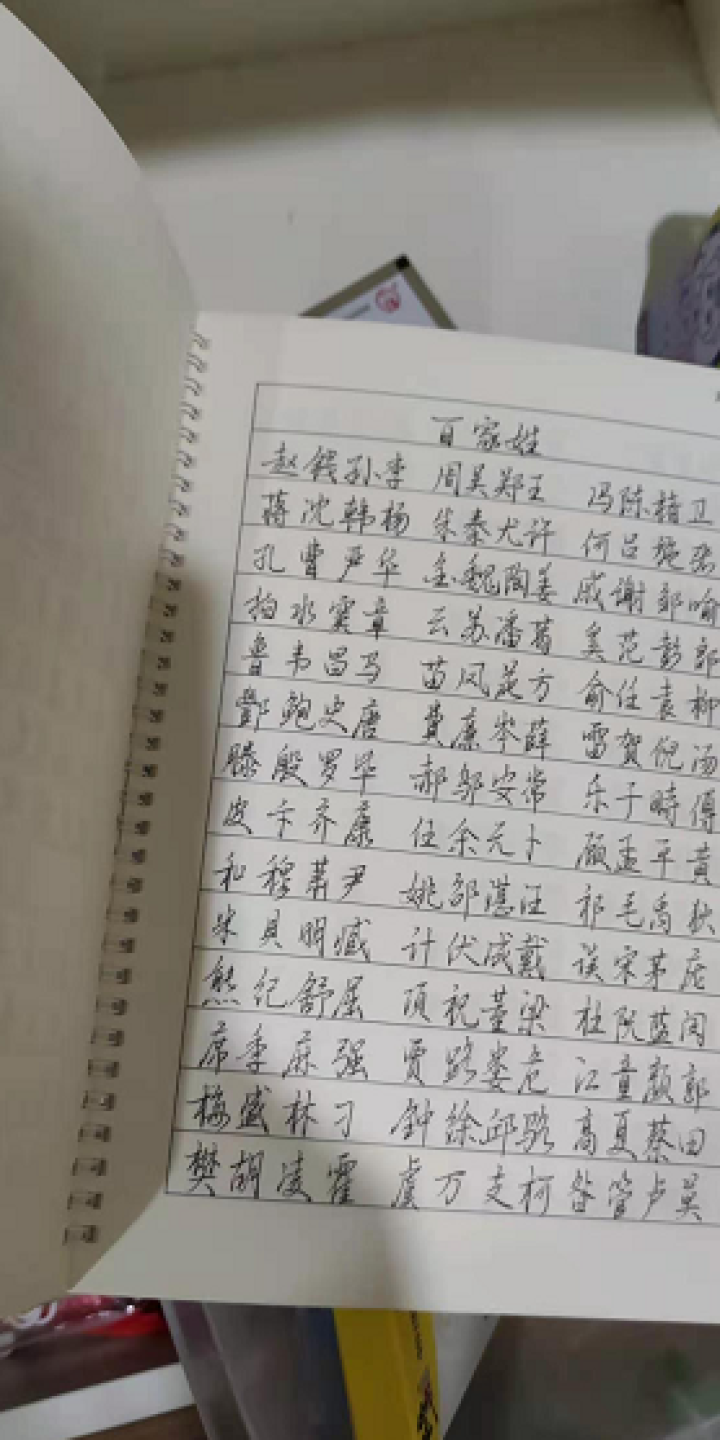 百家姓
赵钱孙李 周吴郑王 冯陈褚卫
蒋沈韩杨 朱秦尤许 何吕施张
孔曹严华 金魏陶姜 戚谢邹喻
柏水窦章 云苏潘葛 奚范彭郎
鲁韦昌马 苗凤花方 俞任袁柳
酆鲍史唐 费廉岑薛 雷贺倪汤
滕殷罗毕 郝邬安常 乐于时傅
皮卞齐康 伍余元卜 顾孟平黄
和穆萧尹 姚邵湛汪 祁毛禹狄
米贝明臧 计伏成戴 谈宋茅庞
熊纪舒屈 项祝董梁 杜阮蓝闵
席季麻强 贾路娄危 江童颜郭
梅盛林刁 钟徐邱骆 高夏蔡田
樊胡凌霍 虞万支柯 昝管卢莫